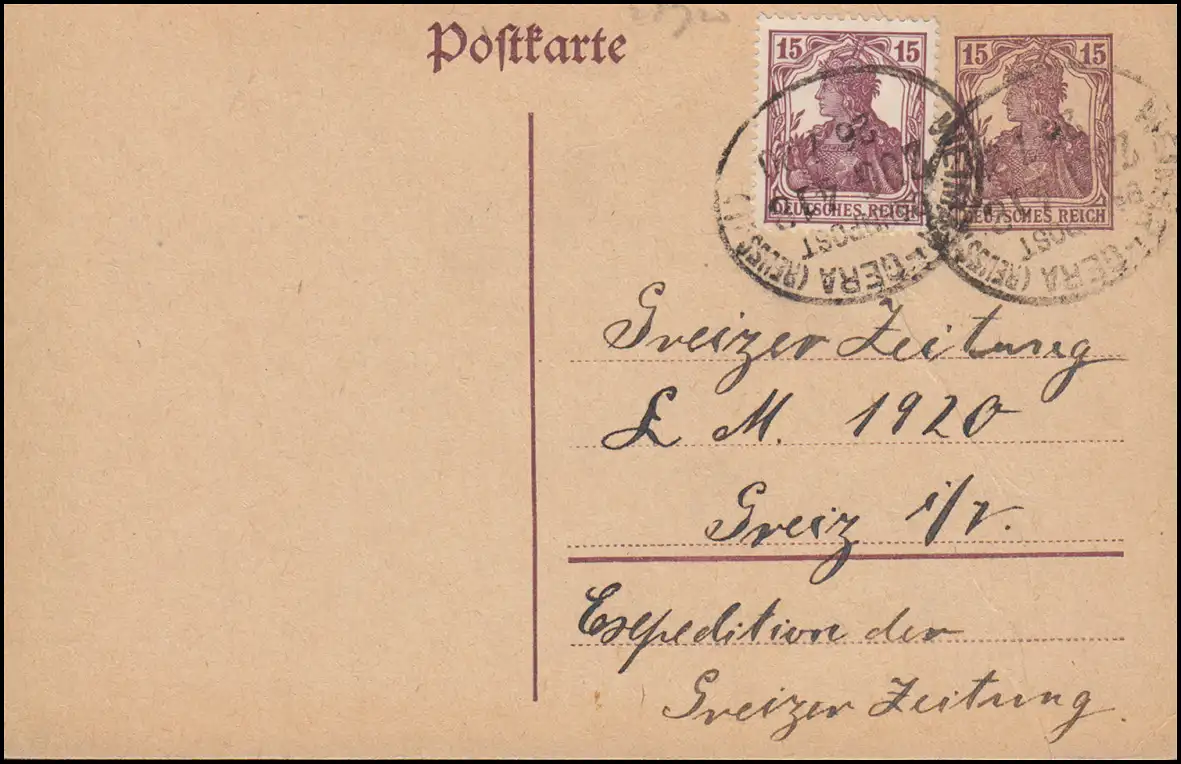 Postkarte
15 15
DEUTSCHES REICH
15 15
DEUTSCHES REICH
GERA (REUSS)
POST
GERA (REUSS
POST
Greizer Zeitung
L M. 1920
Greiz i/r.
Expedition der
Greizer Zeitung.